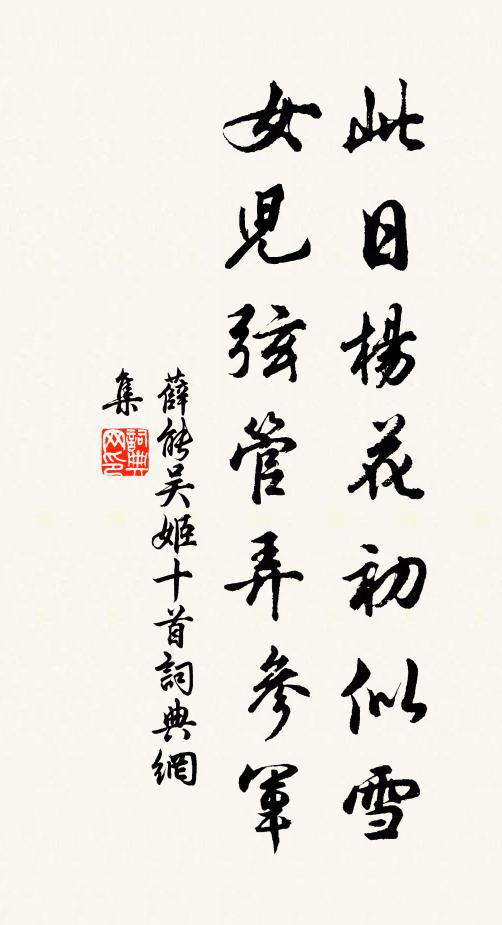 此日楊花初似雪
女児弦管弄參軍
薛能吴姬十首詞典網
集
詞典
网印